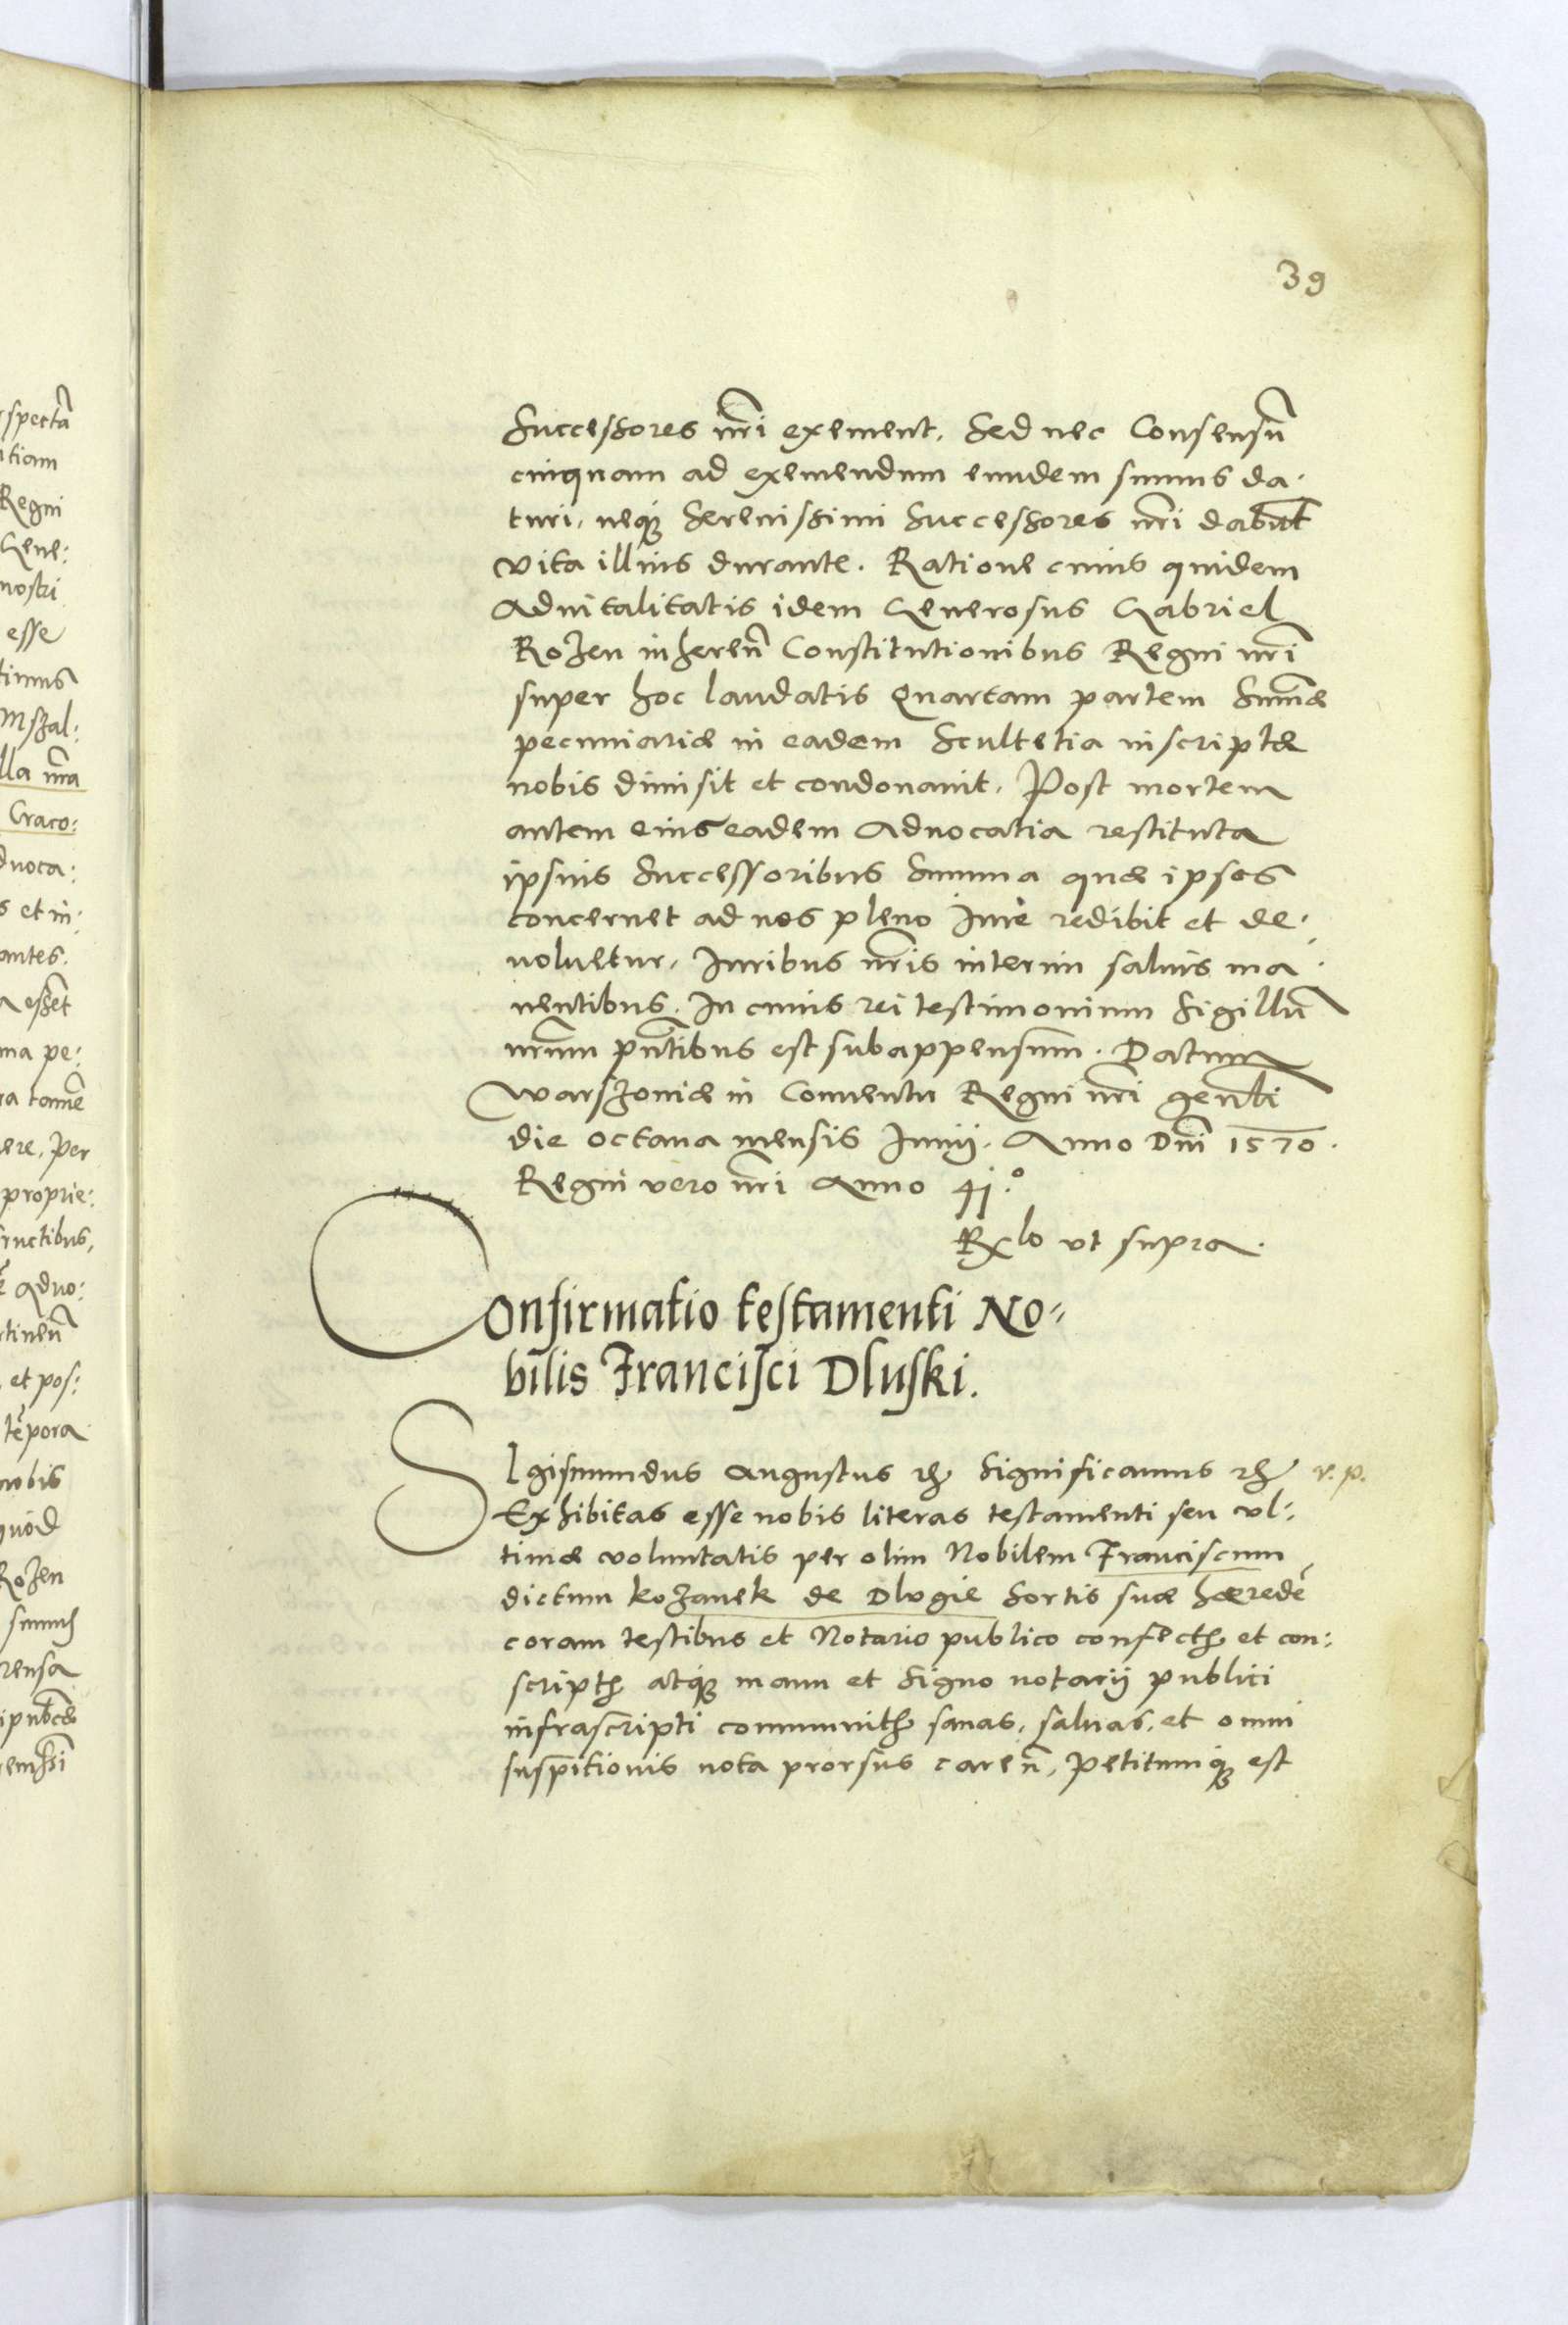 39
Successores nr̃i exement. Sed nec Consensũ
cuiquam ad exemendum eundem sumus da.
turi. neq̃ Serenissimi Successores nr̃i dabũt
vita illius durante. Ratione cuius quidem
Aduitalitatis idem Generosus Gabriel
Rozen inheren̄ Constitutionibus Regni nr̃i
super hoc laudatis Quartam partem Sum̃æ
pecuniariæ in eadem Scultetia inscriptæ
nobis dimisit et condonauit. Post mortem
autem eius eadem Aduocatia restituta
ipsius Successoribus Summa quæ ipsos
concernet ad nos pleno Iure redibit et de.
uoluetur. Iuribus nr̃is interim saluis ma.
nentibus. In cuius rei testimonium Sigillũ
nr̃um pn̄tibus est subappensum. Datum
Warszouiæ in Conuentu Regni nr̃i gen̄ali
die octaua mensis Iunij. Anno Dn̄i 1570.
Regni vero nr̃i Anno 41.º
Rlo vt supra.
Confirmatio testamenti No=
bilis Francisci Dluski.
SIgismundus Augustus etc Significamus etc r. p.
Exhibitas esse nobis literas testamenti seu vl:
timæ voluntatis per olim Nobilem Franciscum
dictum Kozanek de Dlugie Sortis suæ hæredẽ
coram testibus et Notario publico confect̃ et con:
script̃ atq̃ manu et Signo notarij publici
infrascripti communit̃ sanas, saluas, et omni
suspitionis nota prorsus caren̄, Petitumq̃ est
spectã
tiam
Regni
Gene:
nostri
esse
timus
Mszal:
lla nr̃a
Craco:
duoca:
s et in:
antes.
essẽt
ma pe:
ra tamẽ
ere. Per
proprie:
fructibus,
Aduo:
rtinen̄
et pos:
tẽpora
nobis
quod
Rozen
rensa